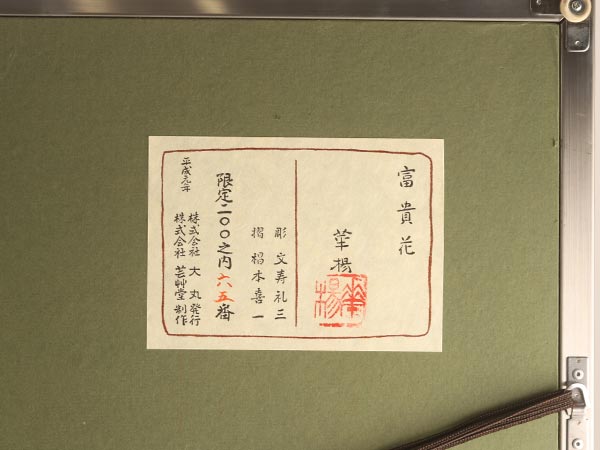 富貴花
華楊
華楊
彫 文寿礼三
摺 稲本喜一
限定二〇〇之内六五番
株式会社 大丸発行
株式会社 芸艸堂制作
平成元年